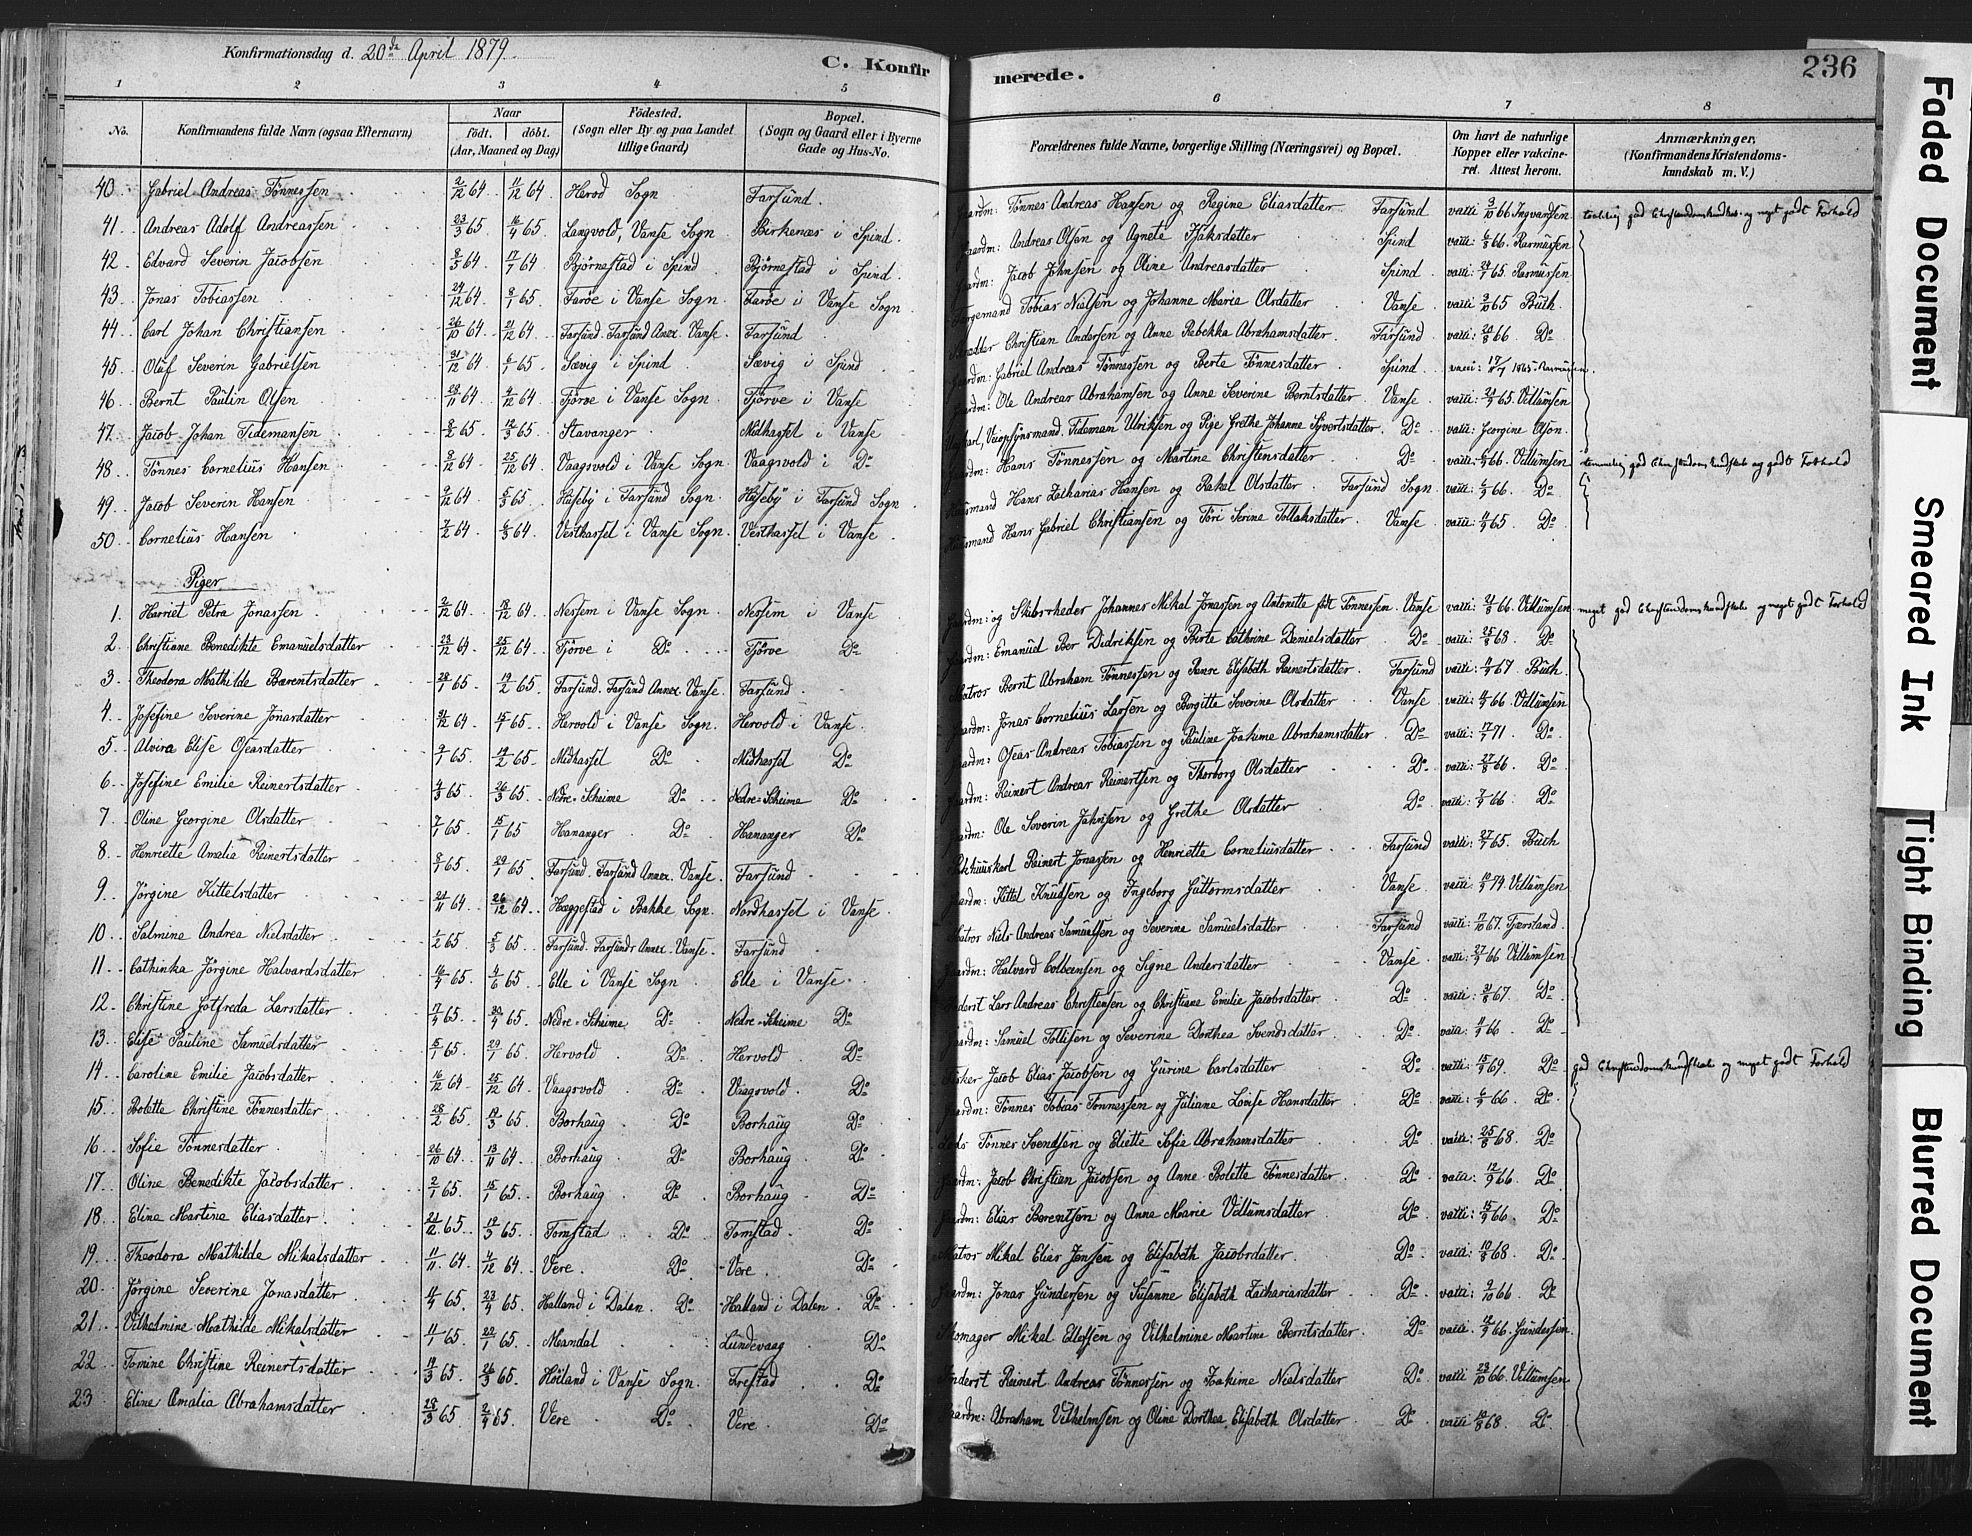 Konfirmationsdag d. 20de April 1879.
C. Konfirmerede.
236
1 2 3 4 5 6 7 8
No. | Konfirmandens fulde Navn (ogsaa Efternavn) | Naar födt. döbt. (Aar, Maaned og Dag) | Födested. (Sogn eller By og paa Landet tillige Gaard) | Bopæl. (Sogn og Gaard eller i Byerne Gade og Hus-No. | Forældrenes fulde Navne, borgerlige Stilling (Næringsvei) og Bopæl. | Om havt de naturlige Kopper eller vakcineret. Attest herom. | Anmærkninger. (Konfirmandens Kristendomskundskab m. V.)
40. Gabriel Andreas Tönnessen 2/12 64 11/12 64 Herod Sogn Farsund. Gaardm: Tönnes Andreas Hansen og Regine Eliasdatter Farsund vacci 3/10 66 Ingvarsen temmelig god Christendomskundskab og meget godt Forhold
41. Andreas Adolf Andreassen 23/3 65 16/4 65 Langvold, Vanse Sogn Birkenæs i Spind. Gaardm: Andreas Olsen og Agnete Isaksdatter Spind vacci: 6/8 66. Rasmussen
42. Edvard Severin Jacobsen 8/3 64 17/7 64 Björnestad i Spind Björnestad i Spind. Gaardm: Jacob Johnsen og Oline Andreasdatter Spind vacci: 24/7 65. Rasmussen
43. Jonas Tobiassen 29/12 64 8/1 65. Faröe i Vanse Sogn Faröe i Vanse Sogn Færgemand Tobias Nielsen og Johanne Marie Olsdatter Vanse vacci 3/10 65 Buch.
44. Carl Johan Christiansen 26/10 64 21/12 64 Farsund. Farsund Anex. Vanse. Farsund Christian Andersen og Anne Rebekka Abrahamsdatter Farsund vacci: 20/8 66. Do
45. Oluf Severin Gabrielsen 31/12 64 6/1 65. Sævig i Spind Sævig i Spind Gaardm: Gabriel Andreas Tönnessen og Berte Tönnesdatter Spind vacci: 17/7 1865 Rasmussen.
46. Bernt Paulin Olsen 28/11 64 4/12 64 Tjörve i Vanse Sogn Tjörve i Vanse Gaardm: Ole Andreas Abrahamsen og Anne Severine Berntsdatter Vanse vacci: 24/9 65. Villumsen
47. Jacob Johan Tidemansen 8/2 65 12/3 65 Stavanger Midhassel i Vanse Veiopsynsmand. Tideman Ulriksen og Pige Grethe Johanne Syvertsdatter. Do vacci: Georgine Olson.
48 Tönnes Cornelius Hansen 8/12 64 25/12 64 Vaagsvold i Vanse Sogn Vaagsvold i Do Gaardm: Hans Tönnessen og Martine Christensdatter Do vacci: 6/9 66. Villumsen temmelig god Christendomskundskab og godt Forhold
49. Jacob Severin Hansen 9/12 64 5/3 65. Huseby i Farsund Sogn. Huseby i Farsund Sogn Huusmand Hans Zacharias Hansen og Rakel Olsdatter Farsund Sogn. vacci: 6/9 66. Do
50. Cornelius Hansen 7/2 64 6/3 64 Vesthassel i Vanse Sogn. Vesthassel i Vanse Huusmand Hans Gabriel Christiansen og Töri Serine Tollaksdatter Vanse vacci: 11/9 65 Do
Piger
1. Harriet Petra Jonassen 2/12 64 18/12 64 Nessem i Vanse Sogn. Nessem i Vanse Gaardm: og Skibsrheder Johannes Mikal Jonassen og Antonette födt Tönnessen. Vanse vacci: 21/8 66. Villumsen meget god Christendomskundskab og meget godt Forhold
2. Christiane Benedikte Emanuelsdatter 23/12 64 25/12 64 Tjörve i Do Tjörve Do Gaardm: Emanuel Ber Didriksen og Birte Cathrine Danielsdatter Do vacci: 25/8 68 Do
3. Theodora Mathilde Bærentsdatter 28/1 65 19/2 65. Farsund. Farsund Annex. Vanse. Farsund. Matros Bernt Abraham Tönnessen og Elisabeth Reinertsdatter Farsund vacci: 4/9 67 Buch.
4. Josefine Severine Jonasdatter 31/12 64 15/1 65. Hervold i Vanse Sogn. Hervold i Vanse. Gaardm: Jonas Cornelius Larsen og Bergitte Severine Olsdatter Vanse vacci: 6/9 66 Villumsen
5. Alvira Elise Oseasdatter 9/1 65. 12/2 65. Midhassel Do Midhassel Do Gaardm: Oseas Andreas Tobiassen og Pauline Joakime Abrahamsdatter Do vacci: 17/7 71 Do
6. Josefine Emilie Reinertsdatter 4/3 65. 26/3 65. Nedre-Skeime Do Nedre-Skeime Do Gaardm: Reinert Andreas Reinertsen og Thorborg Olsdatter Do vacci: 27/8 66. Do
7. Oline Georgine Olsdatter 7/1 65. 15/1 65 Hananger Do Hananger Do Gaardm: Ole Severin Jahnsen og Grethe Olsdatter Do vacci: 7/9 66. Do
8. Henriette Amalia Reinertsdatter 8/1 65. 29/1 65. Farsund. Farsund Annex. Vanse. Farsund Pakhuuskarl Reinert Jonassen og Henriette Corneliusdatter Farsund vacci: 27/7 65. Buch
9. Jörgine Kittelsdatter 24/11 64. 26/12 64. Hæggestad i Bakke Sogn. Nordhassel i Vanse. Gaardm: Kittel Knudsen og Ingeborg Guttormsdatter Vanse. vacci: 10/9 74. Villumsen
10. Salmine Andrea Nielsdatter 1/2 65. 5/3 65. Farsund. Farsunds Annex. Vanse. Farsund Matros Niels Andreas Samuelsen og Severine Samuelsdatter Farsund vacci: 17/10 67. Tjersland
11. Cathinka Jörgine Halvardsdatter 16/4 65. 4/6 65. Elle i Vanse Sogn Elle i Vanse. Gaardm: Halvard Colbeensen og Signe Andersdatter Vanse. vacci: 27/9 66 Villumsen
12. Christine Gotfreda Larsdatter 17/4 65. 30/4 65. Nedre-Skeime. Do Nedre-Skeime Do Inderst Lars Andreas Christensen og Christiane Emilie Jacobsdatter Do vacci: 31/8 67. Do
13. Elise Pauline Samuelsdatter 5/1 65. 29/1 65. Hervold. Do Hervold Do Gaardm: Samuel Tollisen og Severine Dorthea Svendsdatter Do vacci: 11/9 66 Do
14. Caroline Emilie Jacobsdatter 16/12 64 25/12 64. Vaagsvold. Do Vaagsvold. Do Fisker Jacob Elias Jacobsen og Gurine Carlsdatter Do vacci: 15/9 69. Do god Christendomskundskab og meget godt Forhold
15. Bolette Christine Tönnesdatter 28/2 65. 19/3 65. Borhaug. Do Borhaug Do Gaardm: Tönnes Tobias Tönnessen og Juliane Lovise Hansdatter Do vacci: 6/9 66 Do
16. Sofie Tönnesdatter 26/10 64. 13/11 64. Borhaug. Do Borhaug Do Lods Tönnes Svendsen og Eliette Sofie Abrahamsdatter Do vacci: 25/8 68. Do
17. Oline Benedikte Jacobsdatter 2/1 65. 15/1 65. Borhaug. Do Borhaug Do Gaardm: Jacob Christian Jacobsen og Anne Bolette Tönnesdatter Do vacci: 12/9 66. Do
18. Eline Martine Eliasdatter 21/12 65. 19/3 65. Tomstad Do Tomstad. Do Gaardm: Elias Berentsen og Anne Marie Villumsdatter Do vacci: 15/9 66. Do
19. Theodora Mathilde Mikalsdatter 11/11 64. 4/12 64. Vere. Do Vere. Do Matros Mikal Elias Jensen og Elisabeth Jacobsdatter Do vacci: 19/8 68. Do
20. Jörgine Severine Jonasdatter 11/4 65. 23/4 65. Halland i Dalen. Do Halland i Dalen. Do Gaardm: Jonas Gundersen og Susanne Elisabeth Zachariasdatter Do vacci: 9/10 66 Do
21. Vilhelmine Mathilde Mikalsdatter 11/1 65. 22/1 65. Mandal Lundevaag Do Skomager Mikal Ellefsen og Vilhelmine Martine Berntsdatter Do vacci: 12/9 66. Gundersen.
22. Tomine Christine Reinertsdatter 19/3 65 26/3 65. Höiland i Vanse Sogn. Frestad. Do Inderst Reinert Andreas Tönnessen og Joakime Nielsdatter Do vacci: 23/10 66. Villumsen
23. Eline Amalia Abrahamsdatter 25/3 65 2/4 65. Vere Do Vere. Do Gaardm: Abraham Vilhelmsen og Oline Dorthea Elisabeth Olsdatter Do vacci 19/8 68. Do
Faded Document
Smeared Ink
Tight Binding
Blurred Document